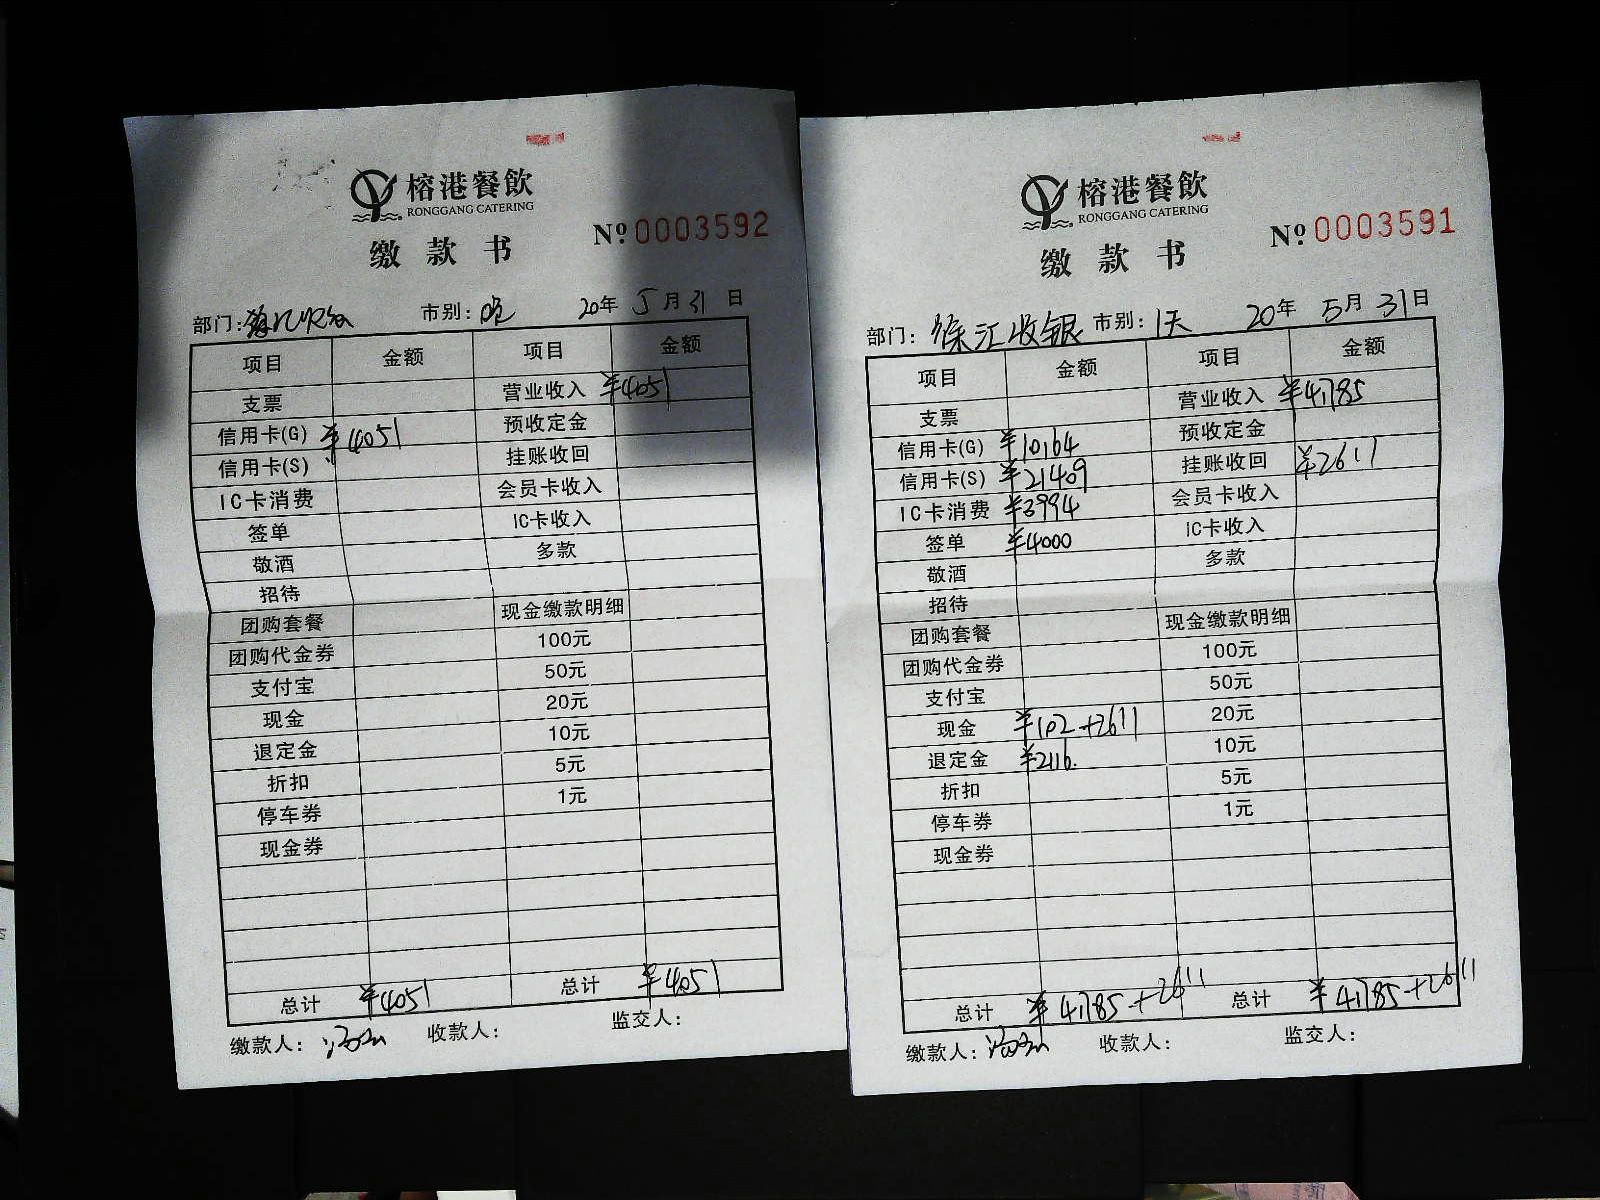 榕港餐飲
RONGGANG CATERING
缴款书
Nº 0003592
部门: 市别: 晚 20年 5月 31日
项目 金额 项目 金额
支票 营业收入 ¥4051
信用卡(G) ¥4051 预收定金
信用卡(S) 挂账收回
IC卡消费 会员卡收入
签单 IC卡收入
敬酒 多款
招待
团购套餐 现金缴款明细
团购代金券 100元
支付宝 50元
现金 20元
退定金 10元
折扣 5元
停车券 1元
现金券
总计 ¥4051 总计 ¥4051
缴款人: 收款人: 监交人:
榕港餐飲
RONGGANG CATERING
缴款书
Nº 0003591
部门: 徐汇收银 市别: 1天 20年 5月 31日
项目 金额 项目 金额
支票 营业收入 ¥41785
信用卡(G) ¥10164 预收定金
信用卡(S) ¥21409 挂账收回 ¥2611
IC卡消费 ¥3994 会员卡收入
签单 ¥4000 IC卡收入
敬酒 多款
招待
团购套餐 现金缴款明细
团购代金券 100元
支付宝 50元
现金 ¥102+2611 20元
退定金 ¥2116. 10元
折扣 5元
停车券 1元
现金券
总计 ¥41785+2611 总计 ¥41785+2611
缴款人: 收款人: 监交人: